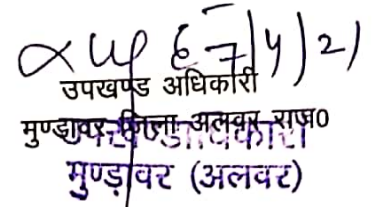 7/4/21
उपखण्ड अधिकारी
मुण्डावर जिला अलवर राज0
उपखण्ड अधिकारी
मुण्ड़ावर (अलवर)